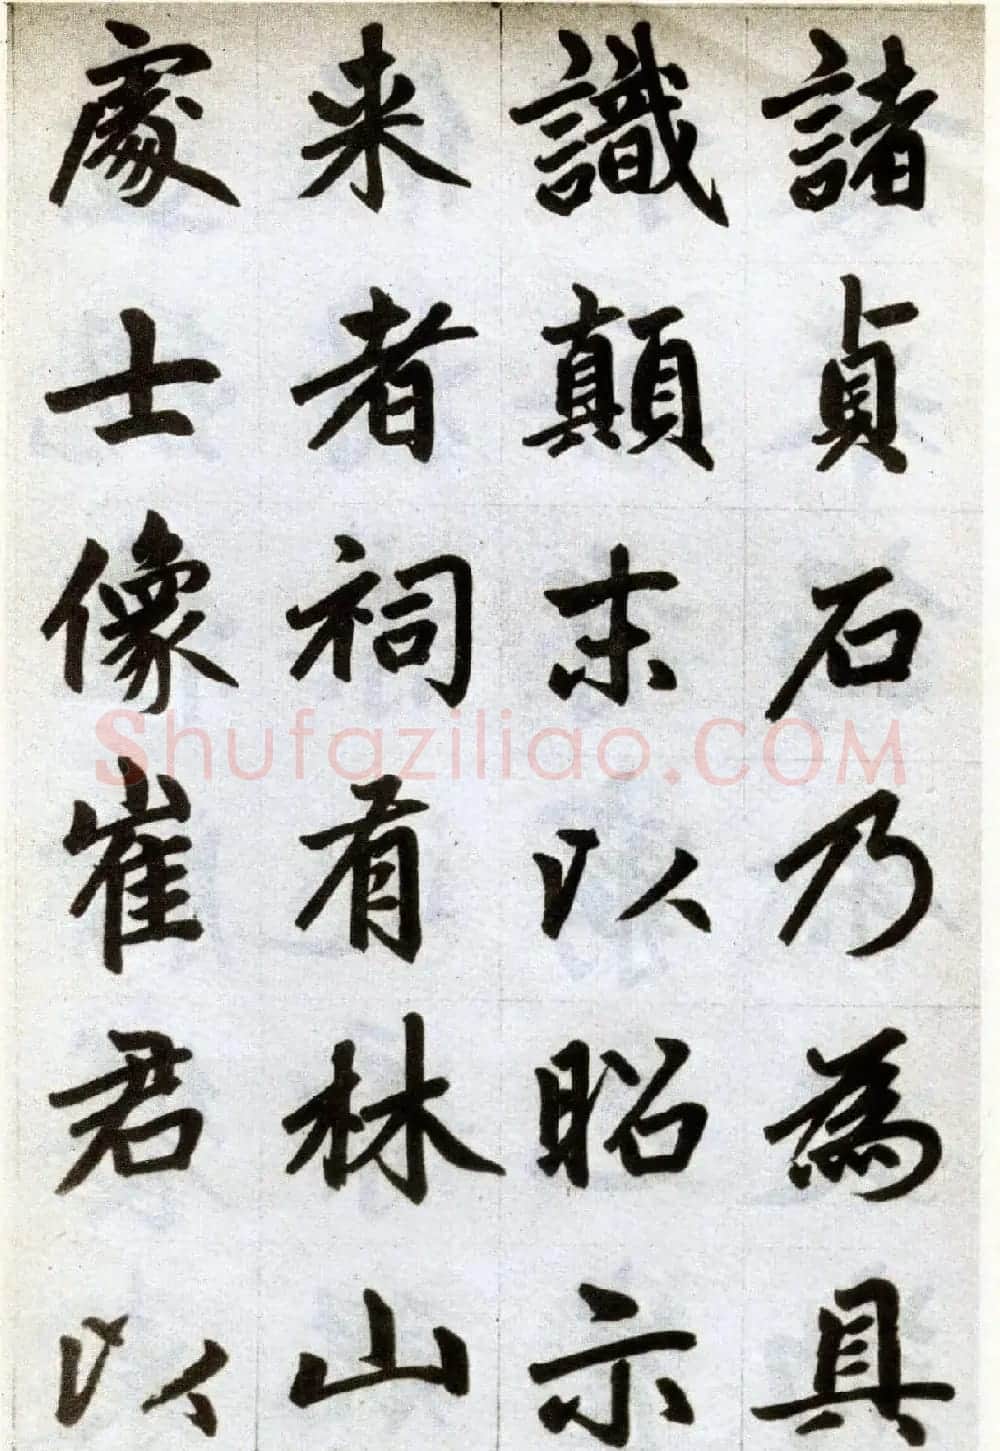 諸貞石乃為具
識顛末以昭示
来者祠有林山
處士像崔君以
Shufaziliao.COM